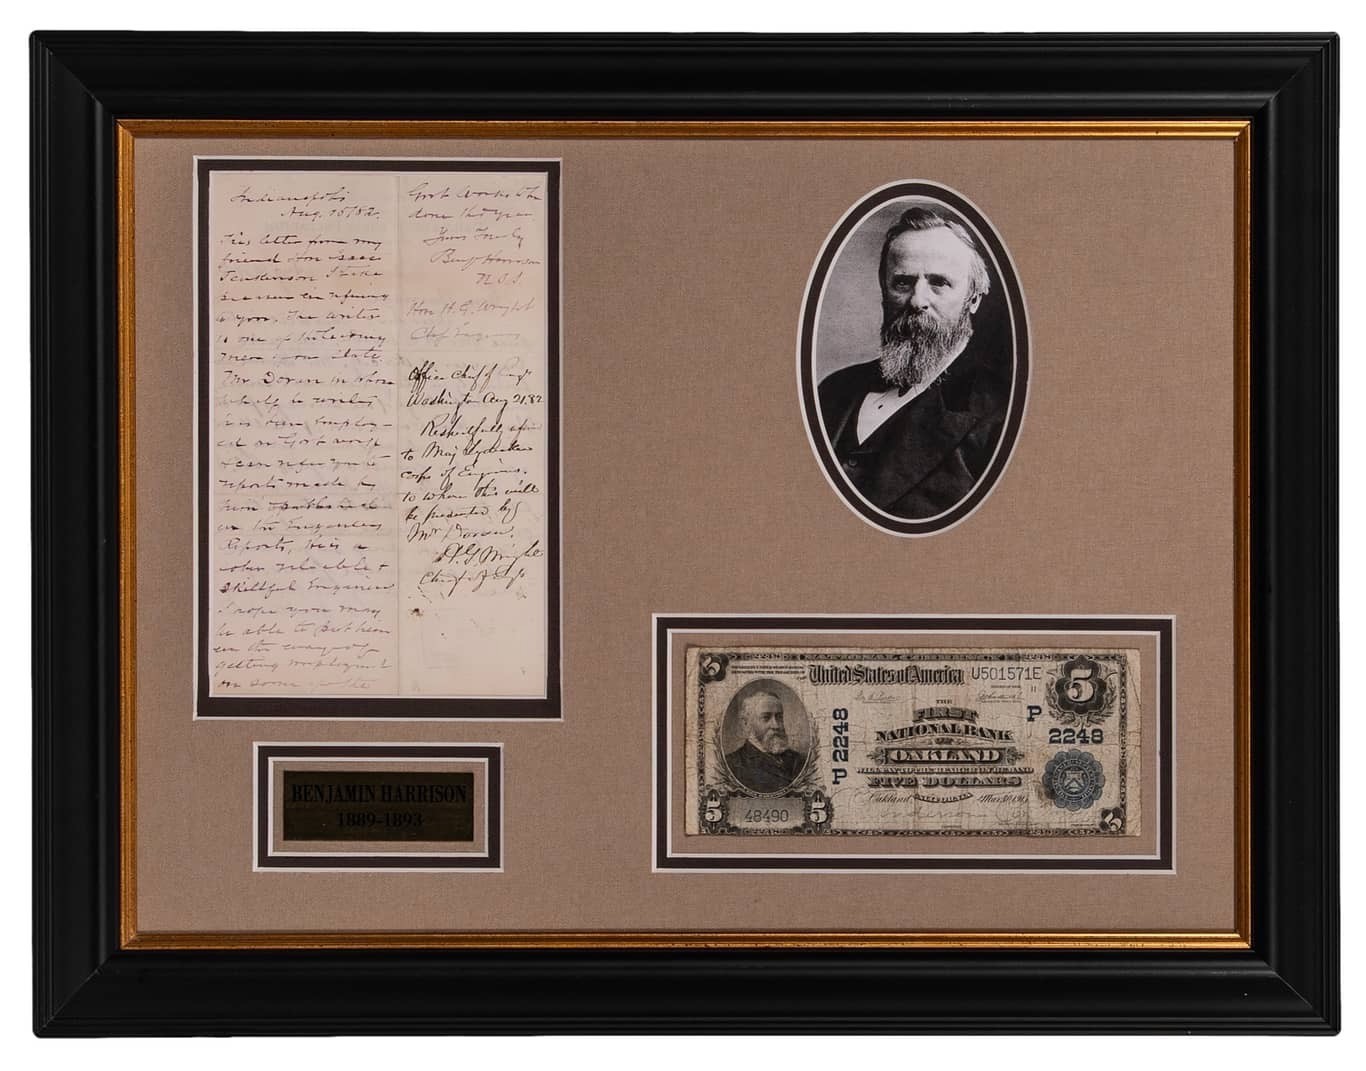 Indianapolis
Aug. 15/82.
This letter from my
friend Hon Isaac
Jenkinson I take
pleasure in refering
to you. The writer
is one of the strong
men of our State.
Mr Doran in whose
behalf he writes
has been employ-
ed on Govt work
I can refer you to
reports made by
him
in the Engineers
Reports, he is a
sober reliable +
skillful Engineer
I hope you may
be able to put him
in the way of
getting employment
on some of the
Govt works to be
done this year
Yours Truly
Benj Harrison
U.S.S.
Hon H. G. Wright
Chf Engineers
Office Chief of Eng's
Washington Aug 21, 82
Respectfully
to Maj Lydecker
corps of Engineers.
to whom this will
be presented by
Mr Doran.
H. G. Wright
Chief of Eng's
BENJAMIN HARRISON
1889-1893
5
United States of America
U501571E
5
THE
FIRST
NATIONAL BANK
OF
OAKLAND
WILL PAY TO THE BEARER ON DEMAND
FIVE DOLLARS
Oakland, CALIFORNIA
P 2248
P
2248
5
48490
5
5